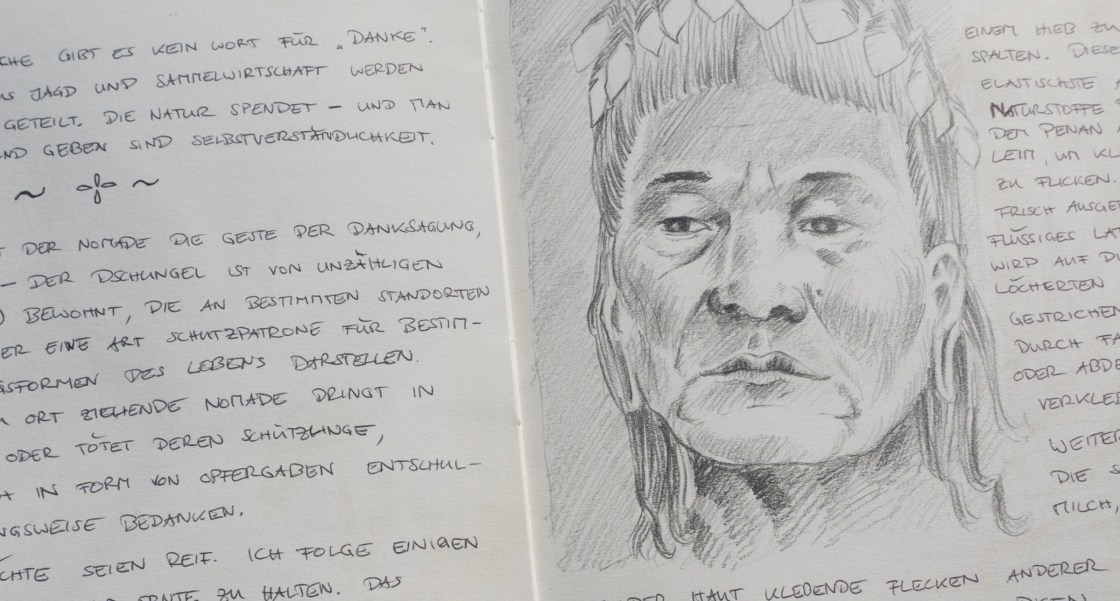 GIBT ES KEIN WORT FÜR „DANKE".
JAGD UND SAMMELWIRTSCHAFT WERDEN
GETEILT. DIE NATUR SPENDET – UND MAN
GEBEN SIND SELBSTVERSTÄNDLICHKEIT.
DER NOMADE DIE GESTE DER DANKSAGUNG,
– DER DSCHUNGEL IST VON UNZÄHLIGEN
BEWOHNT, DIE AN BESTIMMTEN STANDORTEN
EINE ART SCHUTZPATRONE FÜR BESTIM–
DES LEBENS DARSTELLEN.
ORT ZIEHENDE NOMADE DRINGT IN
ODER TÖTET DEREN SCHÜTZLINGE,
IN FORM VON OPFERGABEN ENTSCHUL–
BEDANKEN.
SEIEN REIF. ICH FOLGE EINIGEN
ZU HALTEN. DAS
EINEM HIEB ZU
SPALTEN. DIESE
ELASTISCHSTE
NATURSTOFFE
DEN PENAN
LEIM, UM
ZU FLICKEN.
FRISCH
FLÜSSIGES
WIRD AUF
LÖCHERTEN
GESTRICHEN
DURCH
ODER
WEITER
DIE
MILCH,
HAUT KLEBENDE FLECKEN ANDERER